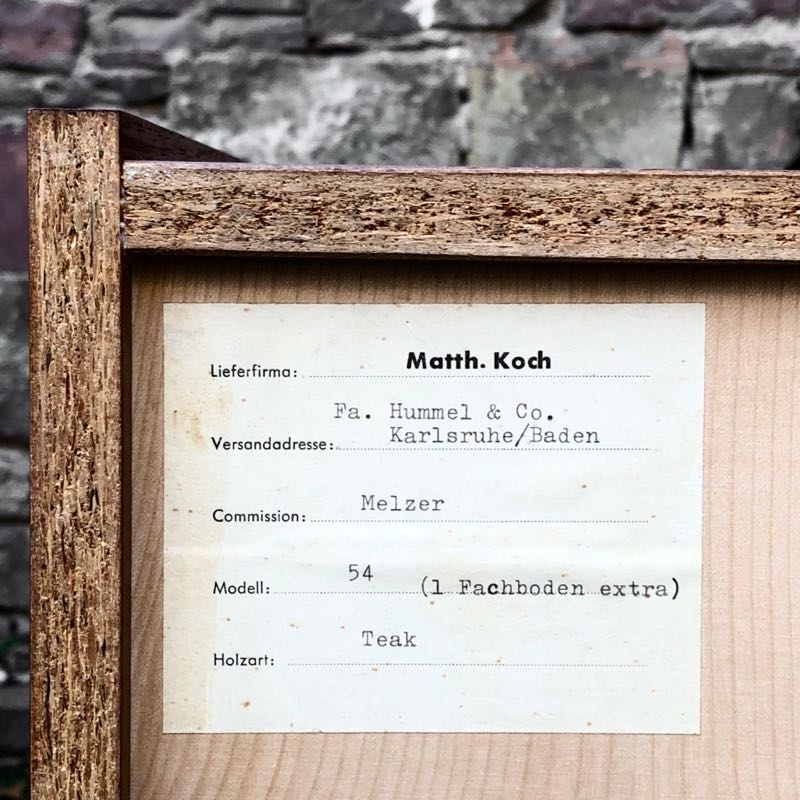 Lieferfirma: Matth. Koch
Fa. Hummel & Co.
Versandadresse: Karlsruhe/Baden
Commission: Melzer
Modell: 54 (1 Fachboden extra)
Holzart: Teak